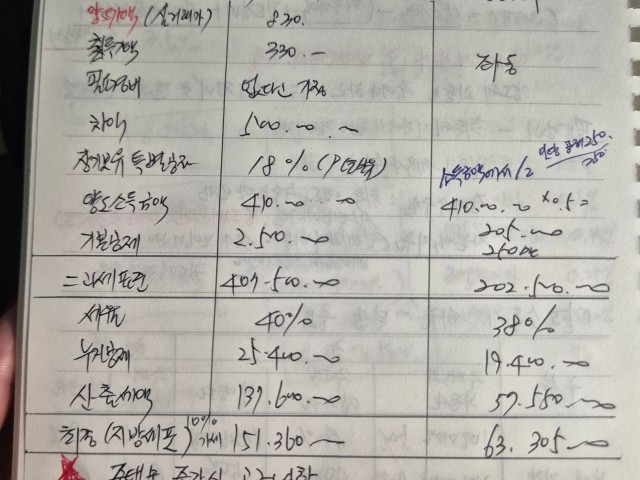 양도가액 (실거래가) 830.
취득가액 330.-
필요경비 없다고 가정 좌동
차익 500.~ ~
장기보유 특별공제 18% (9년보유) 소득금액에서 1/2 인당 공제 250. 250
양도소득금액 410.~ ~ 410.~ ~ ×0.5=
205.~
기본공제 2.500.~ 250
=과세표준 407.500.~ 202.500.~
세율 40% 38%
누진공제 25.400.~ 19.400.~
산출세액 137.600.~ 57.550~
최종 (지방세포) 10% 가세 151.360~ 63.305~